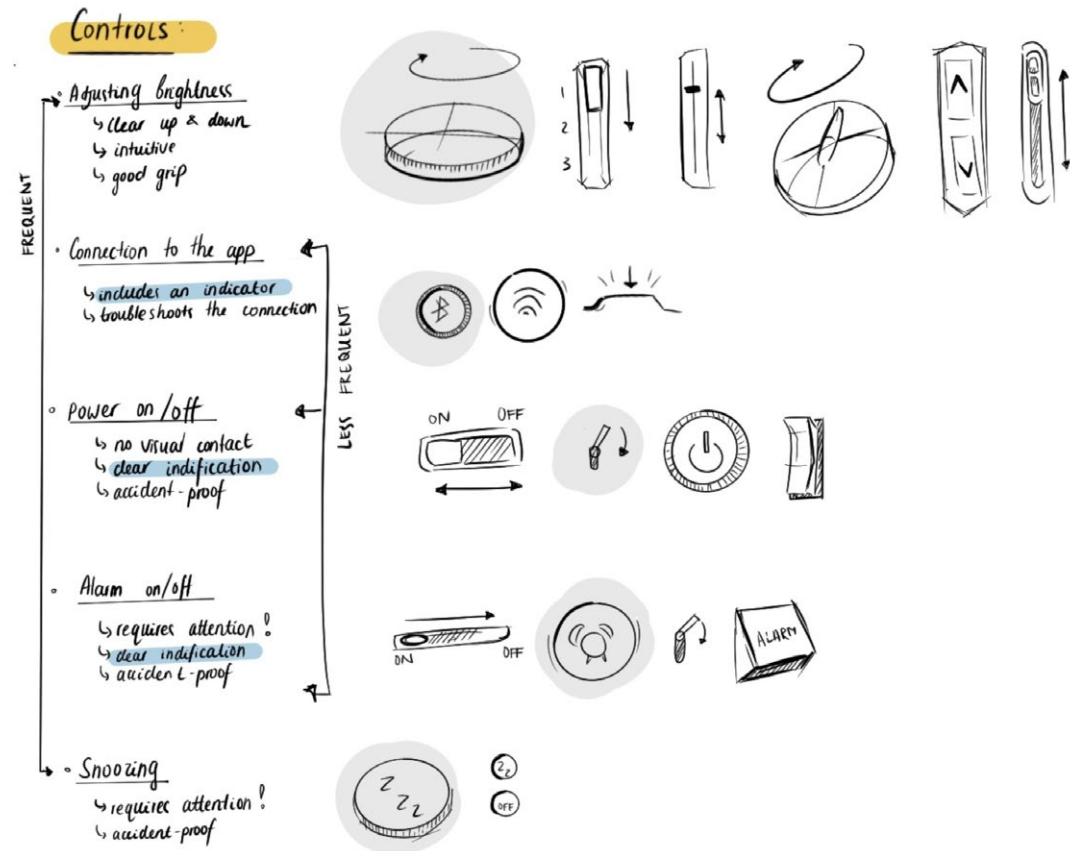 Controls:
Adjusting brightness
↳ clear up & down
↳ intuitive
↳ good grip
FREQUENT
1
2
3
Connection to the app
↳ includes an indicator
↳ troubleshoots the connection
LESS FREQUENT
Power on/off
↳ no visual contact
↳ clear indification
↳ accident-proof
ON OFF
Alarm on/off
↳ requires attention!
↳ clear indification
↳ accident-proof
ON OFF
ALARM
Snoozing
↳ requires attention!
↳ accident-proof
Z Z Z
Z Z
OFF